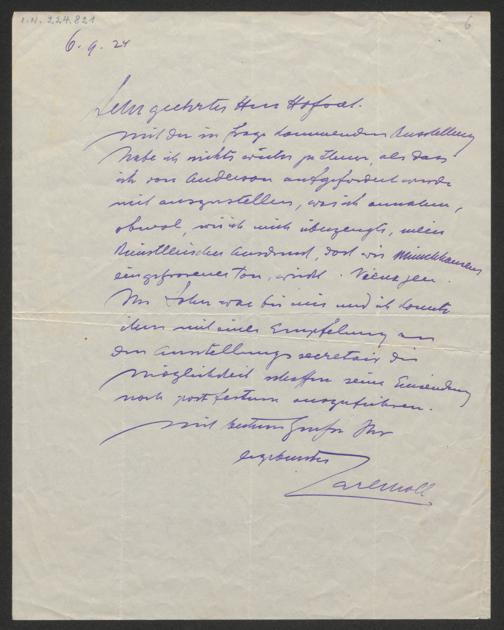 I.N. 224.821
6
6. 9. 24
Sehr geehrter Herr Hofrat.
Mit der in Frage kommenden Ausstellung
habe ich nichts weiter zu tun, als dass
ich von Anderson aufgefordert wurde
mit auszustellen, was ich annahm,
obwol, wie ich mich überzeugte, mein
künstlerischer Ausdruck, dort wie Münchhausens
eingefrorener Ton, wirkt.
Ihr Sohn war bei mir und ich konnte
ihm mit einer Empfelung an
den Ausstellungssecretair die
Möglichkeit schaffen seine Einsendung
noch post festum auszuführen.
Mit bestem Gruße Ihr
ergebenster
Carl Moll